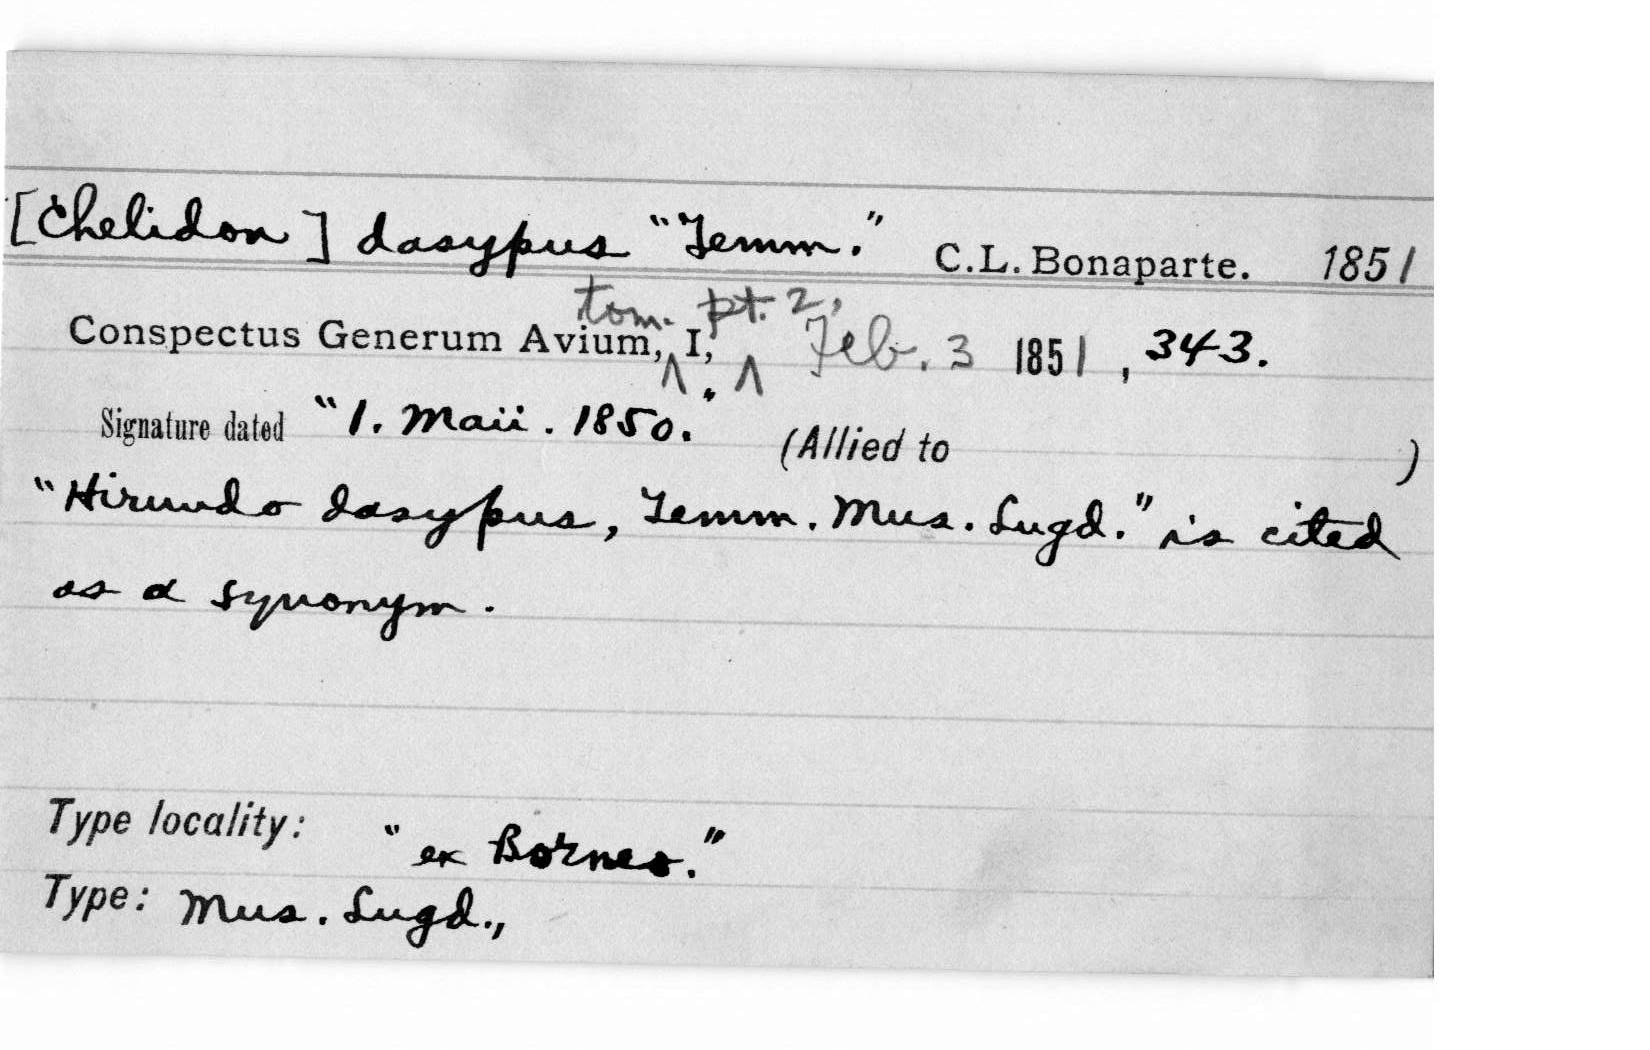 [Chelidon] dasypus "Temm." C.L. Bonaparte. 1851
Conspectus Generum Avium, tom. I, pt. 2, Feb. 3 1851, 343.
Signature dated "1. Maii. 1850." (Allied to )
"Hirundo dasypus, Temm. Mus. Lugd." is cited
as a synonym.
Type locality: "ex Borneo."
Type: Mus. Lugd.,